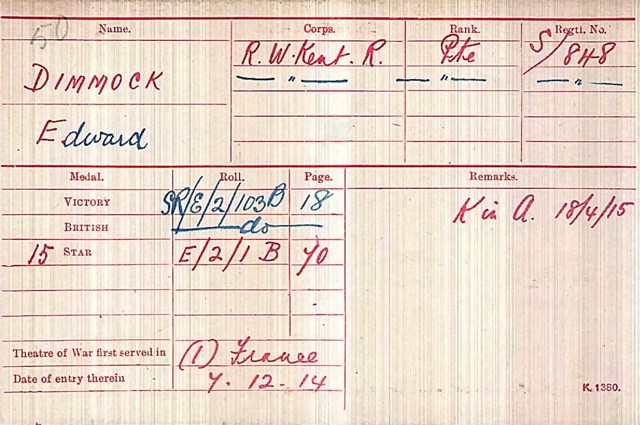 50
Name. Corps. Rank. Regtl. No.
DIMMOCK R. W. Kent. R. Pte S/848
— " — — " — — " —
Edward
Medal. Roll. Page. Remarks.
VICTORY SR/E/2/103B 18 K in A. 18/4/15
BRITISH — do —
15 STAR E/2/1 B 70
Theatre of War first served in (1) France
Date of entry therein 7. 12. 14
K. 1380.